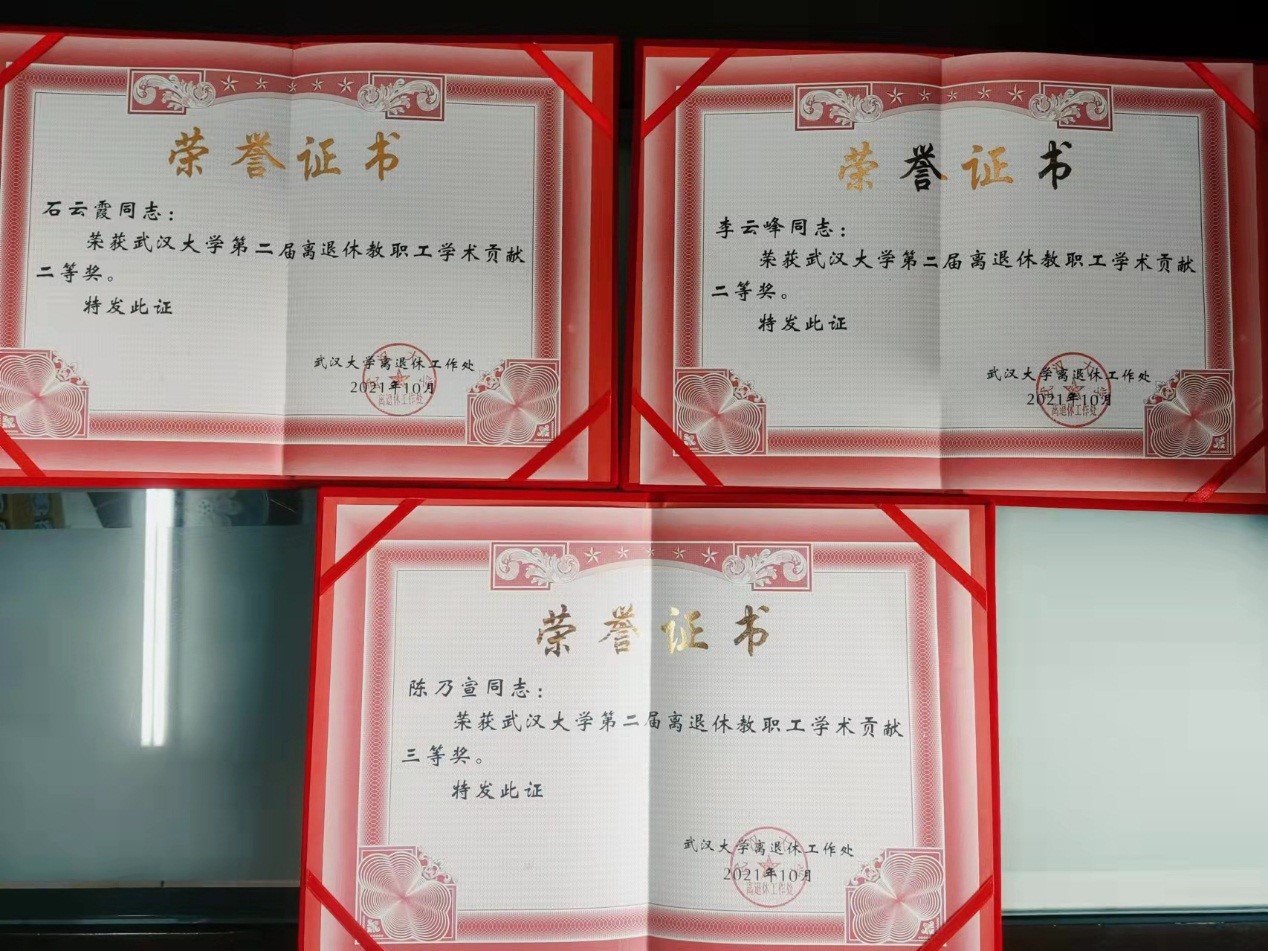 荣誉证书
石云霞同志：
荣获武汉大学第二届离退休教职工学术贡献
二等奖。
特发此证
武汉大学离退休工作处
2021年10月
荣誉证书
李云峰同志：
荣获武汉大学第二届离退休教职工学术贡献
二等奖。
特发此证
武汉大学离退休工作处
2021年10月
荣誉证书
陈乃宣同志：
荣获武汉大学第二届离退休教职工学术贡献
三等奖。
特发此证
武汉大学离退休工作处
2021年10月